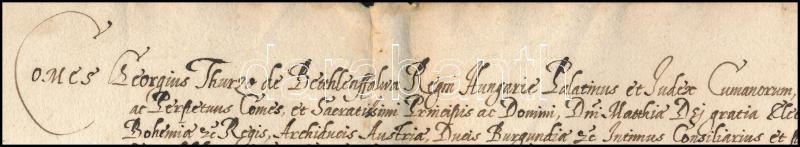 Comes Georgius Thurzo de Bethlenffalwa Regni Hungariæ Palatinus et Iudex Cumanorum,
ac Perpetuus Comes, et Sacratissimi Principis ac Domini, Dni Matthiæ Dei gratia Elec
Bohemiæ &c Regis, Archiducis Austriæ, Ducis Burgundiæ &c Intimus Consiliarius et